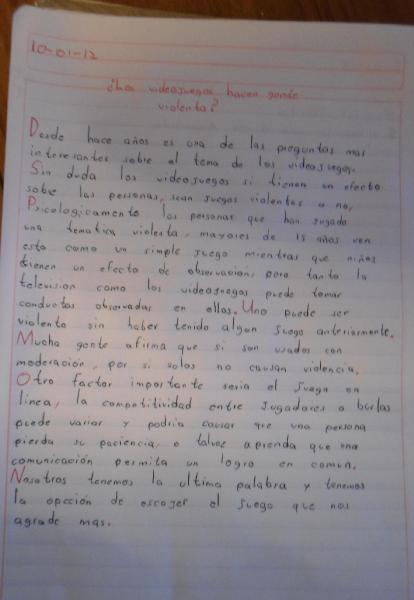 10-01-12
¿Los videojuegos hacen gente
violenta?
Desde hace años es una de las preguntas mas
interesantes sobre el tema de los videojuegos.
Sin duda los videojuegos si tienen un efecto
sobre las personas, sean juegos violentos o no,
Psicologicamente las personas que han jugado
una tematica violenta, mayores de 15 años ven
esto como un simple juego mientras que niños
tienen un efecto de observacion, pero tanto la
television como los videojuegos puede tomar
conductas observadas en ellos. Uno puede ser
violento sin haber tenido algun juego anteriormente.
Mucha gente afirma que si son usados con
moderación, por si solos no causan violencia.
Otro factor importante seria el juego en
linea, la competitividad entre jugadores o burlas
puede variar y podria causar que una persona
pierda su paciencia, o talvez aprenda que una
comunicación permita un logro en comun.
Nosotros tenemos la ultima palabra y tenemos
la opcción de escojer el juego que nos
agrade mas.